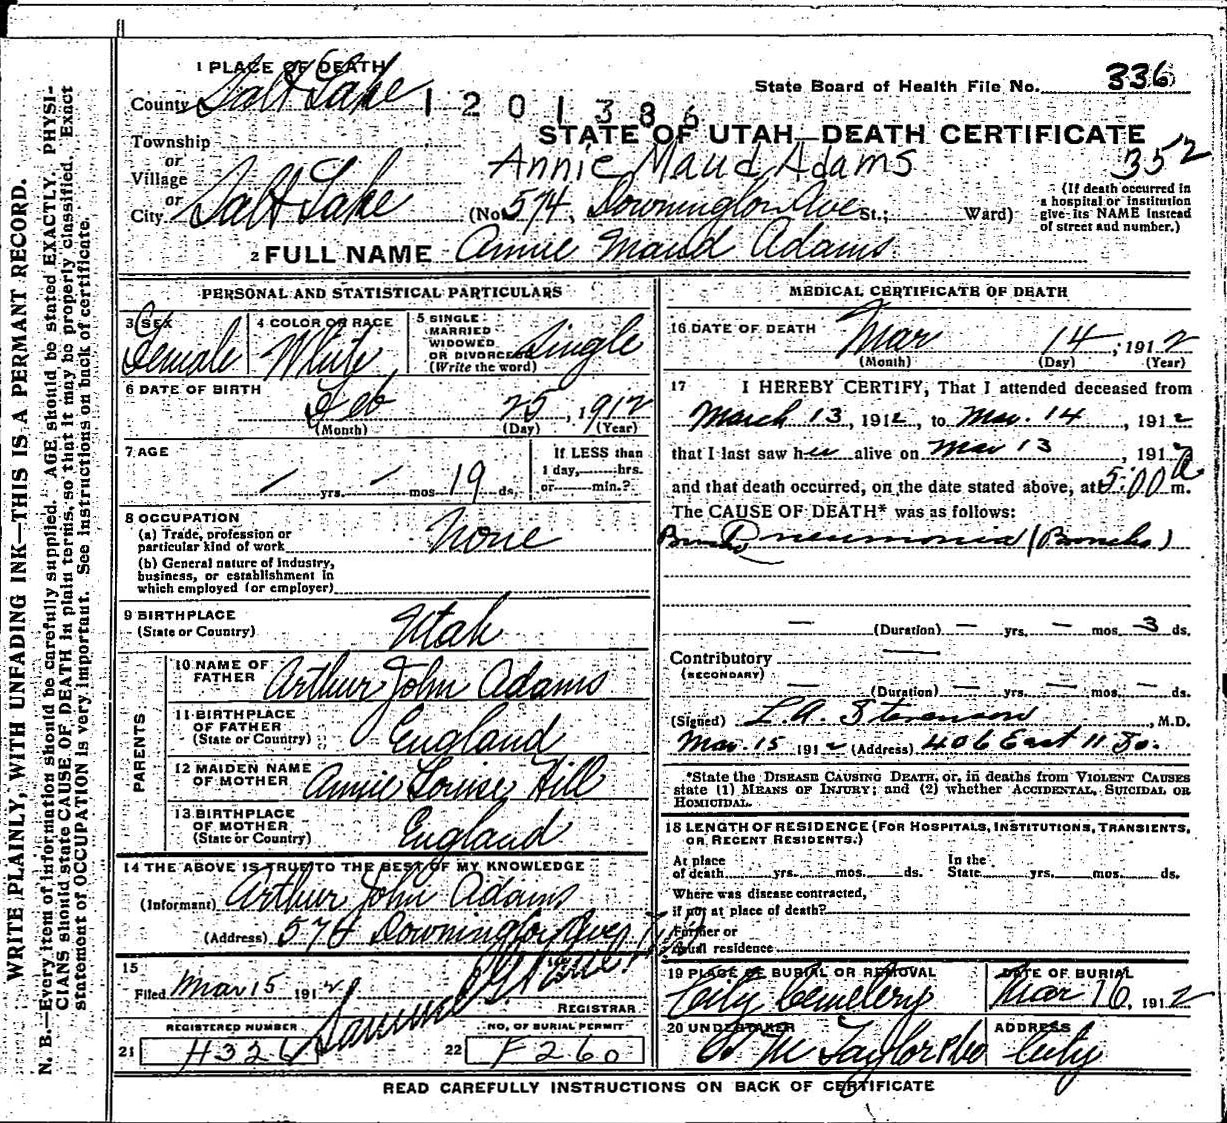 1 PLACE OF DEATH
County Salt Lake
1201386
State Board of Health File No. 336
STATE OF UTAH—DEATH CERTIFICATE
Township
or
Village
Annie Maud Adams
352
or
City Salt Lake (No. 574, Downington Ave St.; Ward)
(If death occurred in
a hospital or institution
give its NAME instead
of street and number.)
2 FULL NAME Annie Maud Adams
PERSONAL AND STATISTICAL PARTICULARS
3 SEX
Female
4 COLOR OR RACE
White
5 SINGLE
MARRIED
WIDOWED
OR DIVORCED
(Write the word)
Single
6 DATE OF BIRTH
Feb 25, 1912
(Month) (Day) (Year)
7 AGE
/ yrs. / mos 19 ds.
If LESS than
1 day, hrs.
or min.?
8 OCCUPATION
(a) Trade, profession or
particular kind of work None
(b) General nature of industry,
business, or establishment in
which employed (or employer)
9 BIRTHPLACE
(State or Country) Utah
PARENTS
10 NAME OF
FATHER Arthur John Adams
11 BIRTHPLACE
OF FATHER
(State or Country) England
12 MAIDEN NAME
OF MOTHER Annie Louise Hill
13 BIRTHPLACE
OF MOTHER
(State or Country) England
14 THE ABOVE IS TRUE TO THE BEST OF MY KNOWLEDGE
(Informant) Arthur John Adams
(Address) 574 Downington Ave
15
Filed Mar 15 1912
REGISTRAR
REGISTERED NUMBER
21 H326
NO. OF BURIAL PERMIT
22 F260
MEDICAL CERTIFICATE OF DEATH
16 DATE OF DEATH
Mar 14, 1912
(Month) (Day) (Year)
17 I HEREBY CERTIFY, That I attended deceased from
March 13, 1912, to Mar. 14, 1912
that I last saw her alive on Mar 13, 1912
and that death occurred, on the date stated above, at 5:00 a m.
The CAUSE OF DEATH* was as follows:
Broncho Pneumonia (Broncho)
— (Duration) — yrs. — mos 3 ds.
Contributory —
(SECONDARY)
— (Duration) — yrs. — mos. — ds.
(Signed) L. A. Stevenson, M.D.
Mar. 15 1912 (Address) 406 East 11 So.
*State the DISEASE CAUSING DEATH, or, in deaths from VIOLENT CAUSES
state (1) MEANS OF INJURY; and (2) whether ACCIDENTAL, SUICIDAL OR
HOMICIDAL.
18 LENGTH OF RESIDENCE (FOR HOSPITALS, INSTITUTIONS, TRANSIENTS,
OR RECENT RESIDENTS.)
At place
of death yrs. mos. ds.
In the
State yrs. mos. ds.
Where was disease contracted,
if not at place of death?
Former or
usual residence
19 PLACE OF BURIAL OR REMOVAL
City Cemetery
DATE OF BURIAL
Mar 16, 1912
20 UNDERTAKER
M Taylor
ADDRESS
City
READ CAREFULLY INSTRUCTIONS ON BACK OF CERTIFICATE
WRITE PLAINLY, WITH UNFADING INK—THIS IS A PERMANT RECORD.
N. B.—Every item of information should be carefully supplied. AGE should be stated EXACTLY. PHYSI-
CIANS should state CAUSE OF DEATH in plain terms, so that it may be properly classified. Exact
statement of OCCUPATION is very important. See instructions on back of certificate.